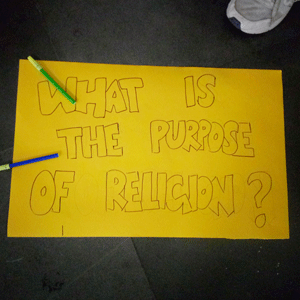 WHAT IS
THE PURPOSE
OF RELIGION?